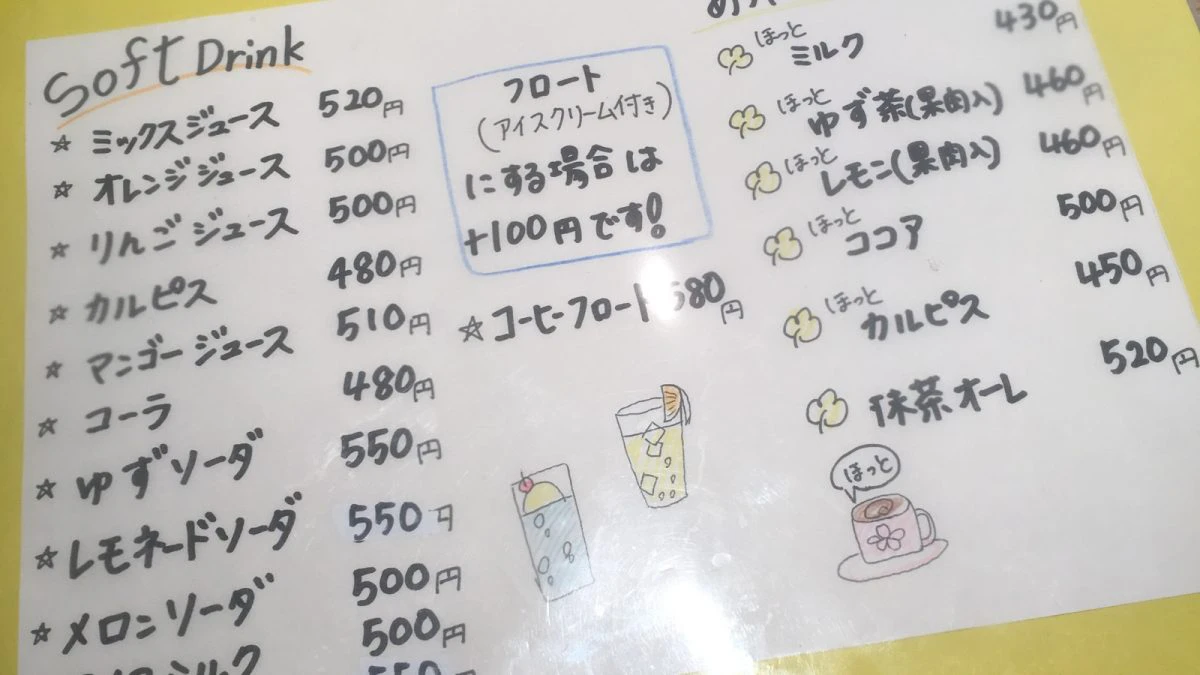 Soft Drink
☆ ミックスジュース 520円
☆ オレンジジュース 500円
☆ りんごジュース 500円
☆ カルピス 480円
☆ マンゴージュース 510円
☆ コーラ 480円
☆ ゆずソーダ 550円
☆ レモネードソーダ 550円
☆ メロンソーダ 500円
ミルク 500円
550
フロート
(アイスクリーム付き)
にする場合は
+100円です!
☆ コーヒーフロート 580円
ほっと
ミルク 430円
ほっと
ゆず茶(果肉入) 460円
ほっと
レモン(果肉入) 460円
ほっと
ココア 500円
ほっと
カルピス 450円
抹茶オーレ 520円
ほっと